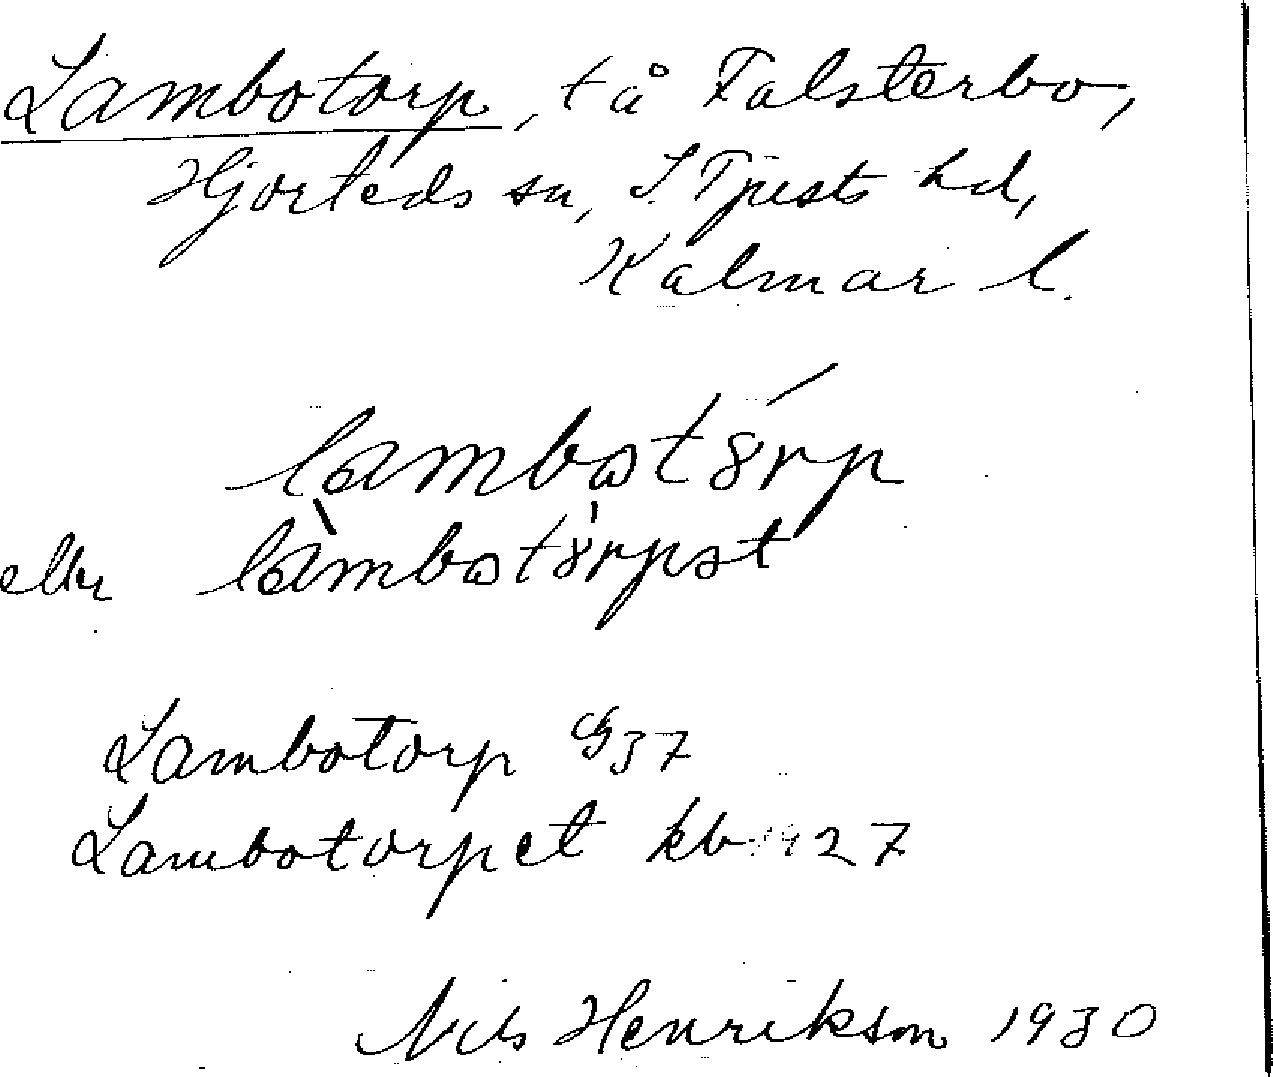 Lambotorp, t å Falsterbo,
Hjorteds sn, S. Tjusts hd,
Kalmar l.
lambotørp
eller lambotørpət
Lambotorp G 37
Lambotorpet kb 1927
Nils Henrikson 1930